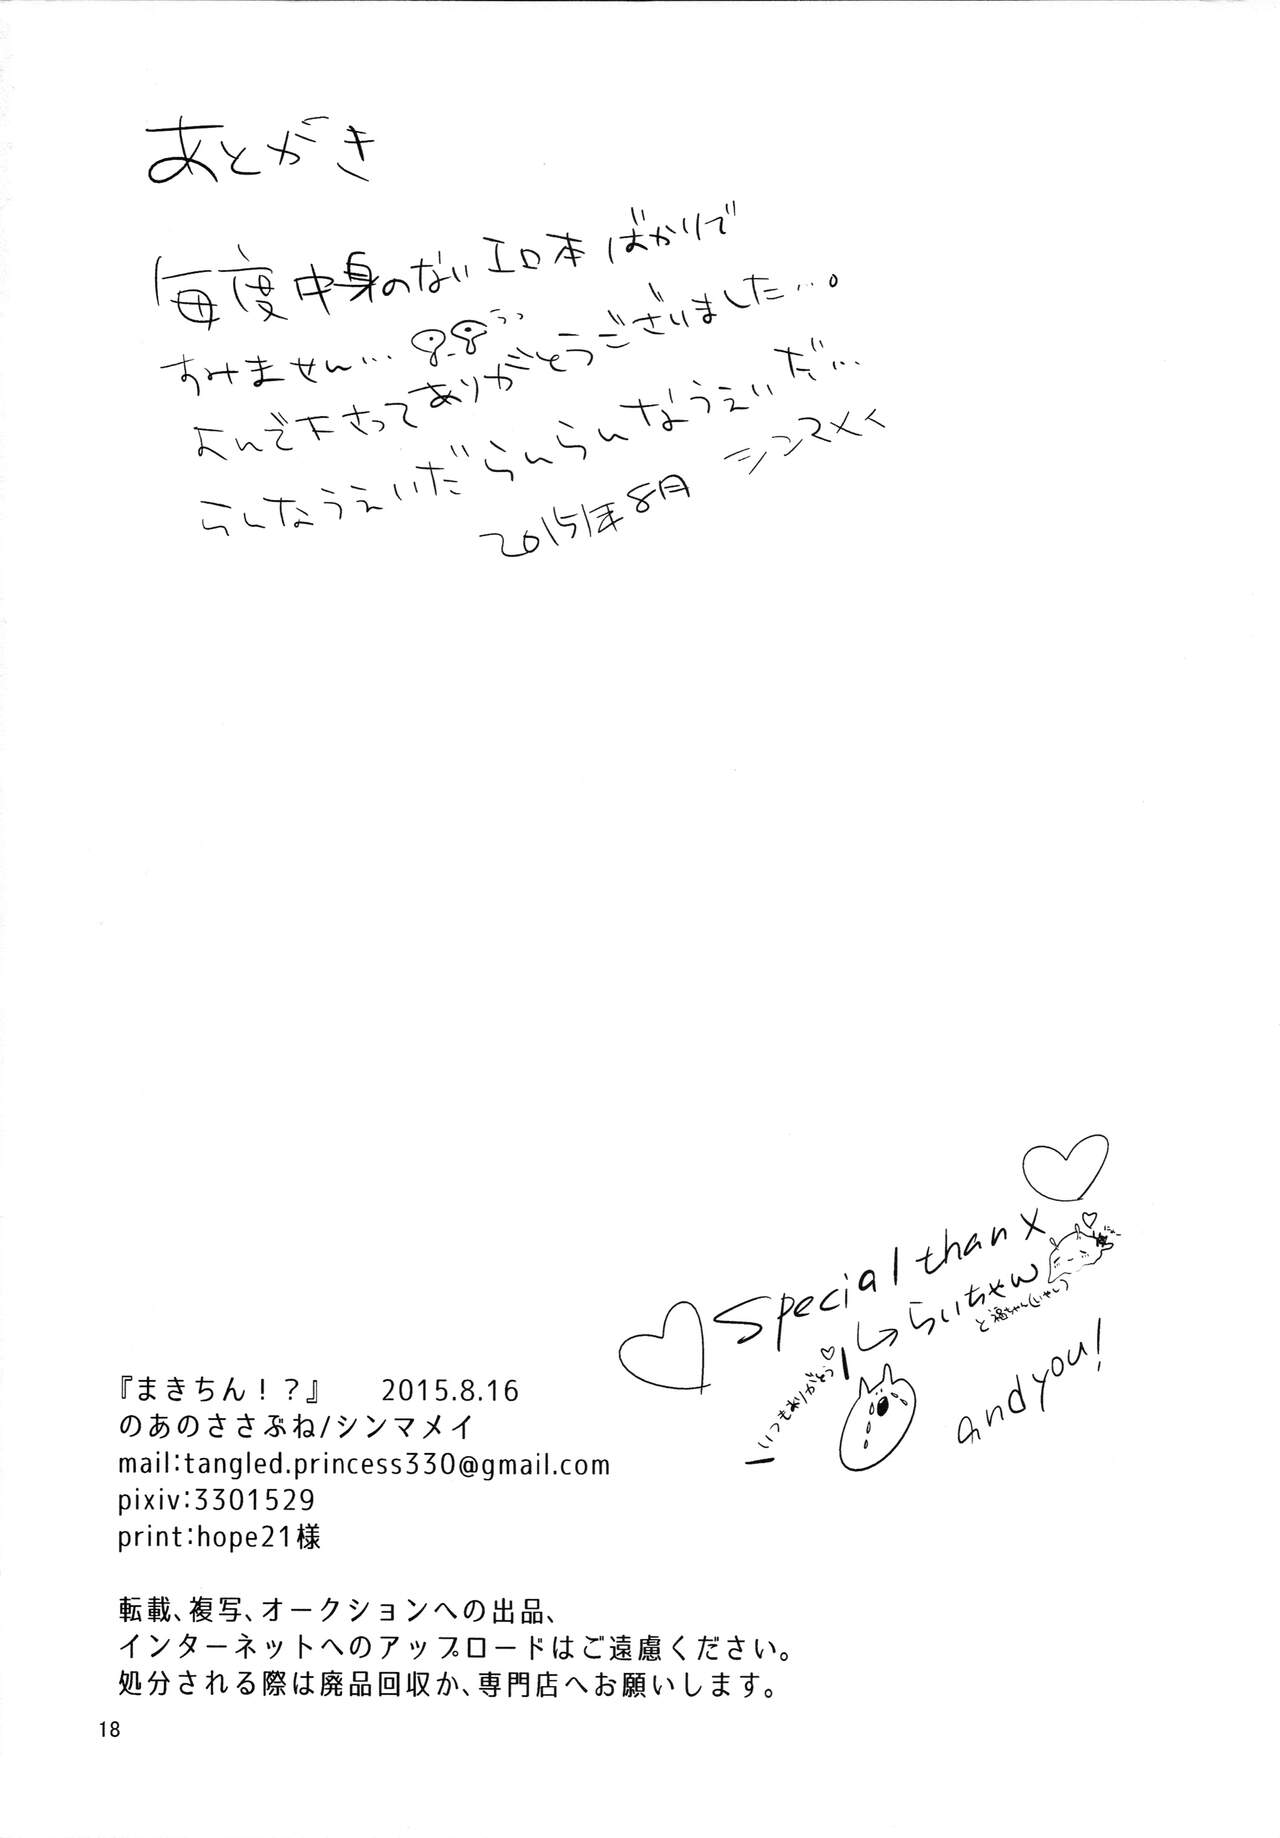 あとがき
毎度中身のないエロ本ばかりで
すみません… うっ
よんで下さってありがとうございました…。
らんなうぇいだらんらんなうぇいだ…
2015年8月 シンマメイ
Special thanx
らいちゃん
と福ちゃん(いやし)
にゃー
いつもありがとう
and you!
『まきちん!?』 2015.8.16
のあのささぶね/シンマメイ
mail:tangled.princess330@gmail.com
pixiv:3301529
print:hope21様
転載、複写、オークションへの出品、
インターネットへのアップロードはご遠慮ください。
処分される際は廃品回収か、専門店へお願いします。
18